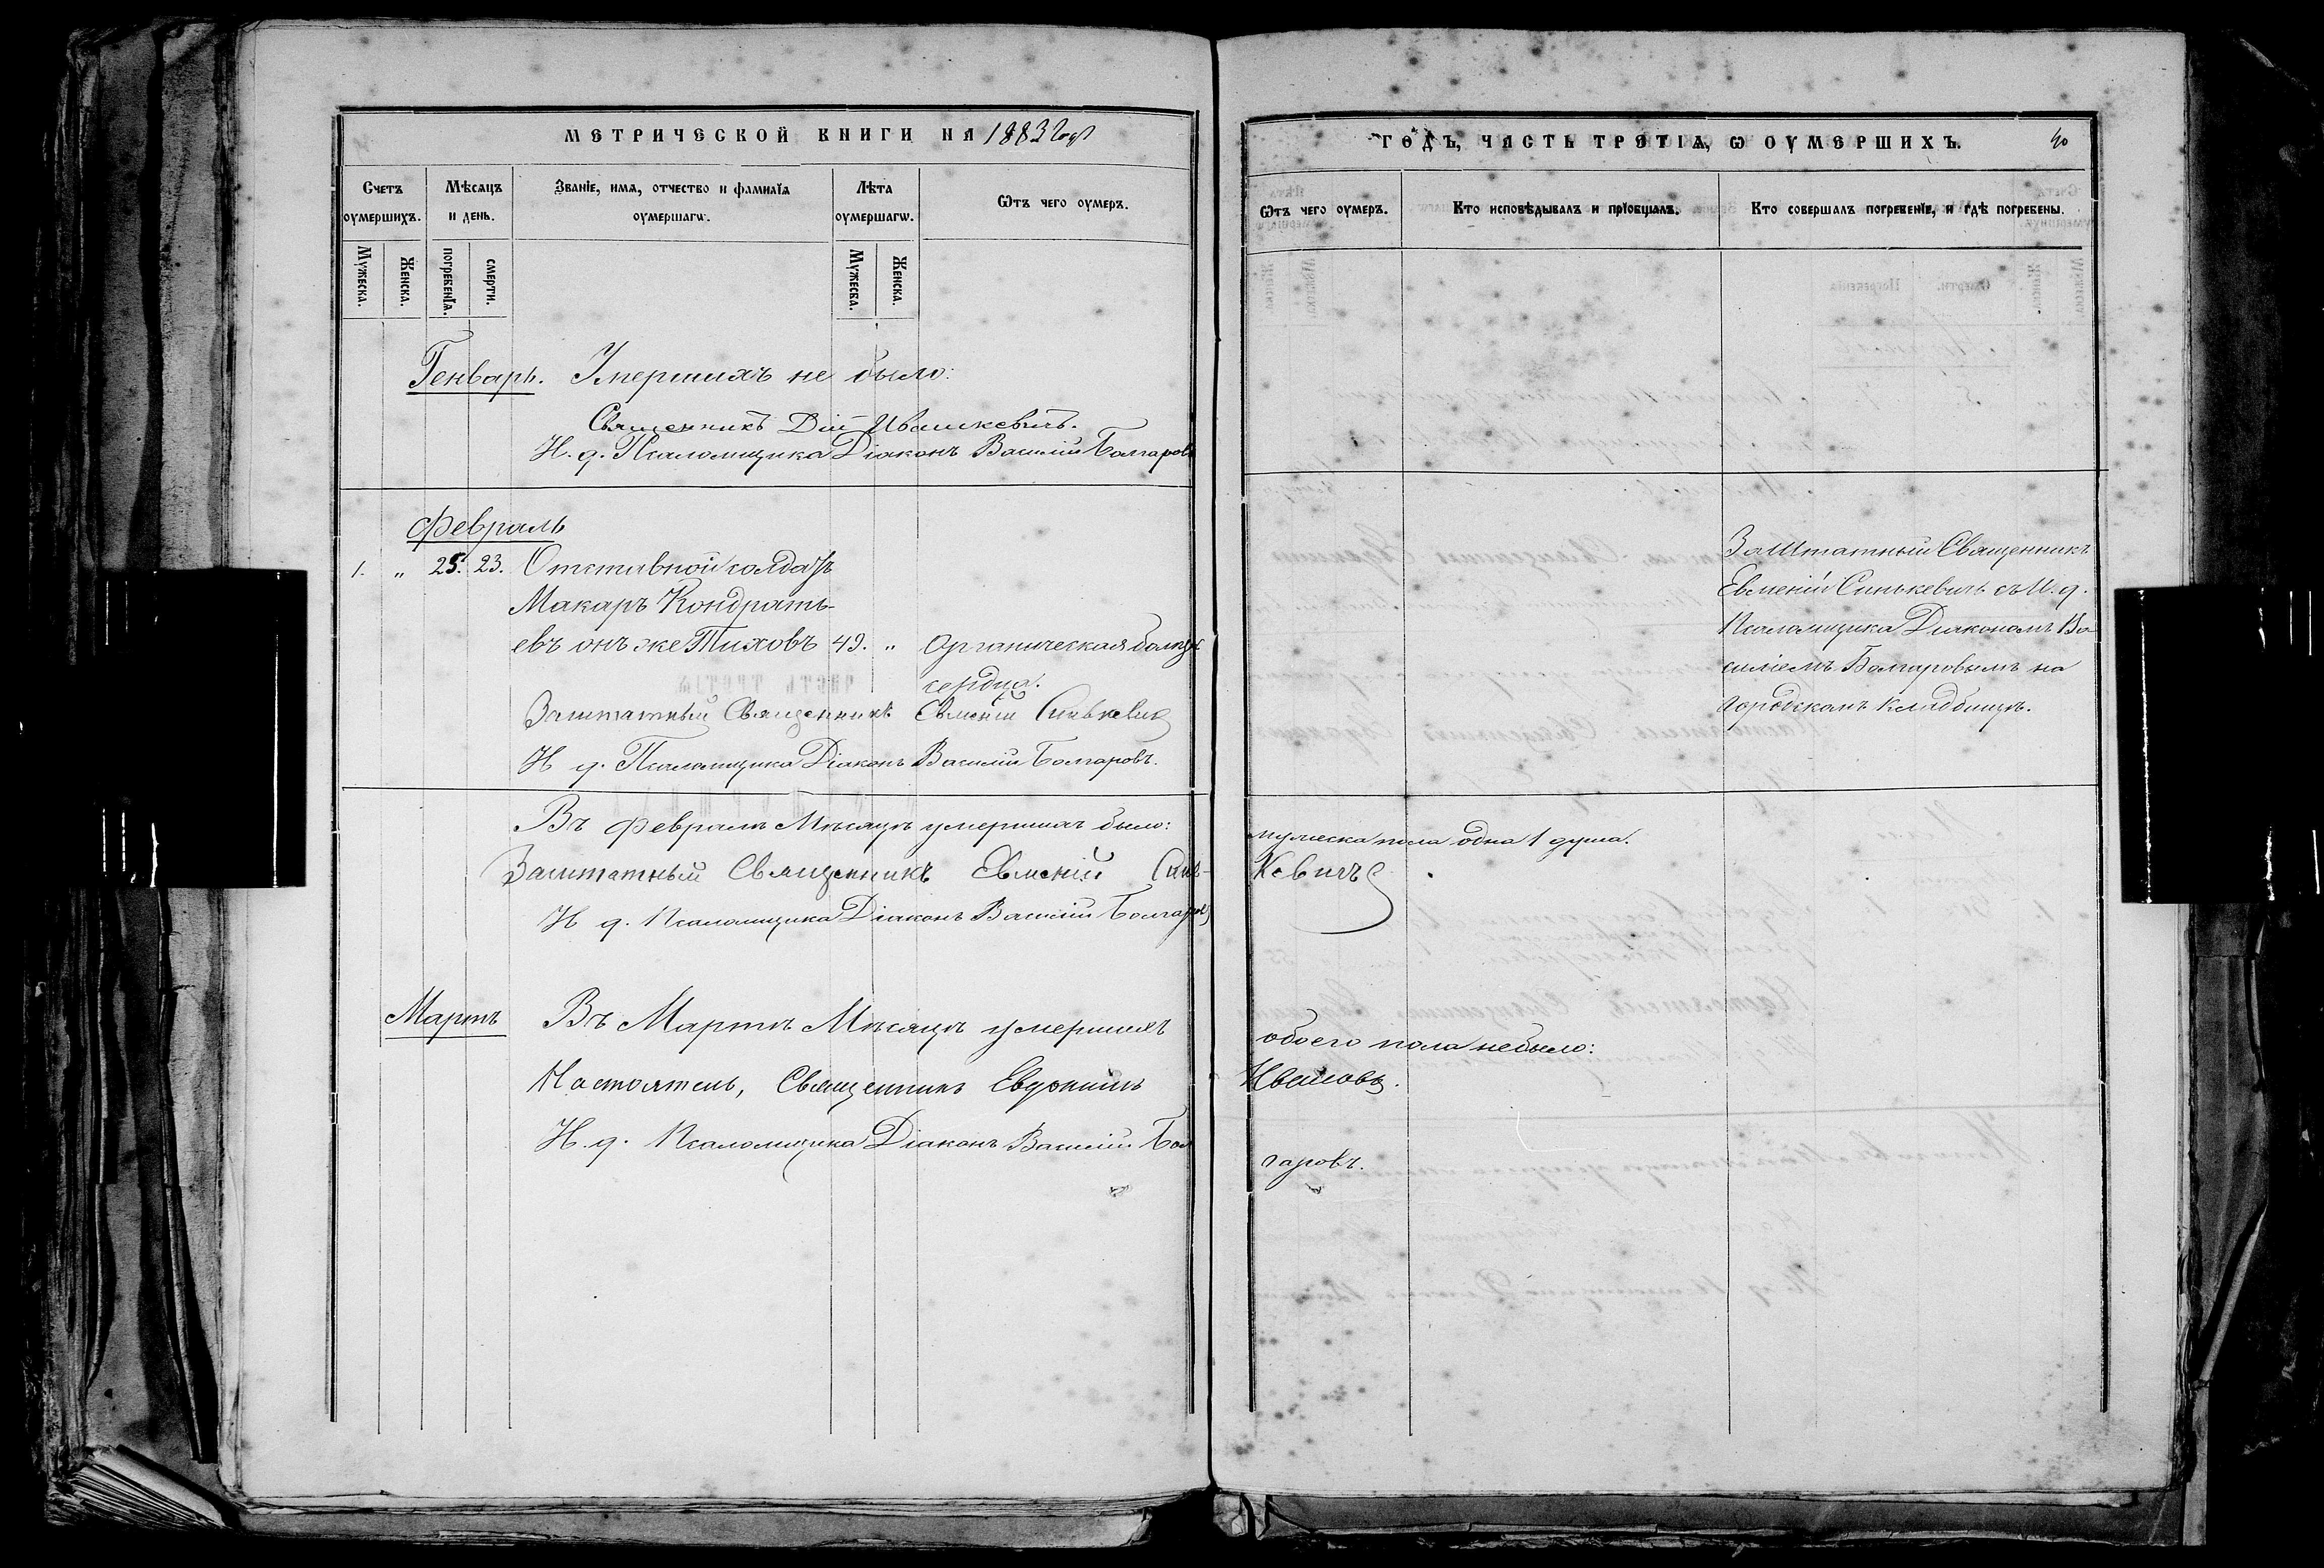 МЕТРИЧЕСКОЙ КНИГИ НА 1883 Годъ
Счетъ оумершихъ.
Мѣсяцъ и день.
Званіе, имя, отчество и фамилія оумершагѡ.
Лѣта оумершагѡ.
Ѿтъ чего оумеръ.
Мужеска.
Женска.
погребенїѧ.
смерти.
Мужеска.
Женска.
Генварь. Умершихъ не было:
Священникъ Дій Ивашкевичъ.
И. д. Псаломщика Діаконъ Василій Болгаровъ
Февраль
1. „ 25. 23. Отставной солдатъ
Макаръ Кондрать-
евъ онъ же Тиховъ 49. „ Органическая болѣзн.
сердца.
Заштатный Священникъ Евменій Синькевич
И д. Псаломщика Діаконъ Василій Болгаровъ.
Въ Февралѣ Мѣсяцѣ умершихъ было:
Заштатный Священникъ Евменій Синь-
И д. Псаломщика Діаконъ Василій Болгаровъ
Мартъ Въ Мартѣ Мѣсяцѣ умершихъ
Настоятель, Священникъ Евдокимъ
И. д. Псаломщика Діаконъ Василій Бол
ГОДЪ, ЧАСТЬ ТРЕТІѦ, Ѡ ОУМЕРШИХЪ. 40
Ѿтъ чего оумеръ.
Кто исповѣдывалъ и прїобщалъ.
Кто совершалъ погребенїе, и гдѣ погребены.
Заштатный Священникъ
Евменій Синькевичъ съ И. д.
Псаломщика Діакономъ Ва-
силіемъ Болгаровымъ на
городскомъ кладбищѣ.
мужеска пола одна 1 душа.
кевичъ
обоего пола небыло:
Ивановъ.
гаровъ.